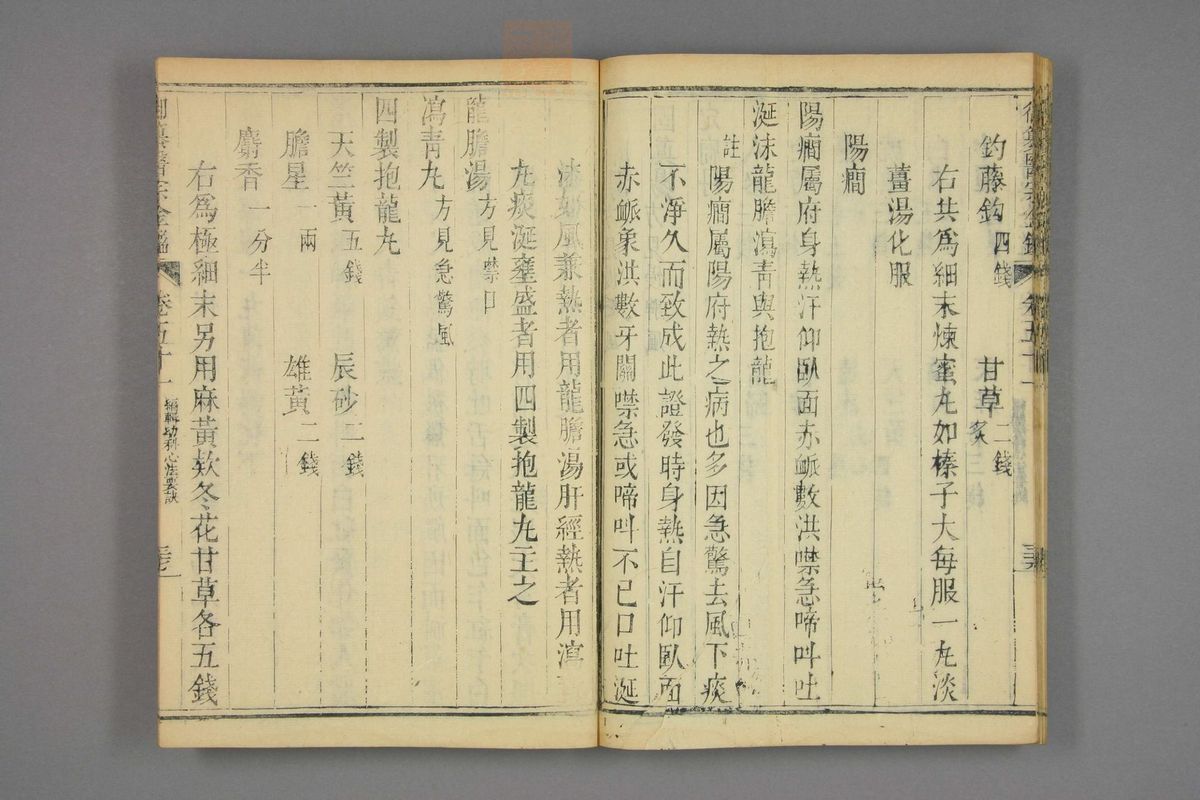 御纂醫宗金鑑 卷五十一
釣藤鈎四錢 甘草炙二錢
右共為細末煉蜜丸如榛子大每服一丸淡
薑湯化服
陽癇
陽癇屬府身熱汗仰臥面赤脈數洪噤急啼叫吐
涎沫龍膽瀉青與抱龍
註陽癇屬陽府熱之病也多因急驚去風下痰
不淨久而致成此證發時身熱自汗仰臥面
赤脈象洪數牙關噤急或啼叫不已口吐涎
沫如風兼熱者用龍膽湯肝經熱者用瀉青
丸痰涎壅盛者用四製抱龍丸主之
龍膽湯方見噤口
瀉青丸方見急驚風
四製抱龍丸
天竺黃五錢 辰砂二錢
膽星一兩 雄黃二錢
麝香一分半
右為極細末另用麻黃欵冬花甘草各五錢
御纂醫宗金鑑 卷五十一 編輯幼科心法要訣